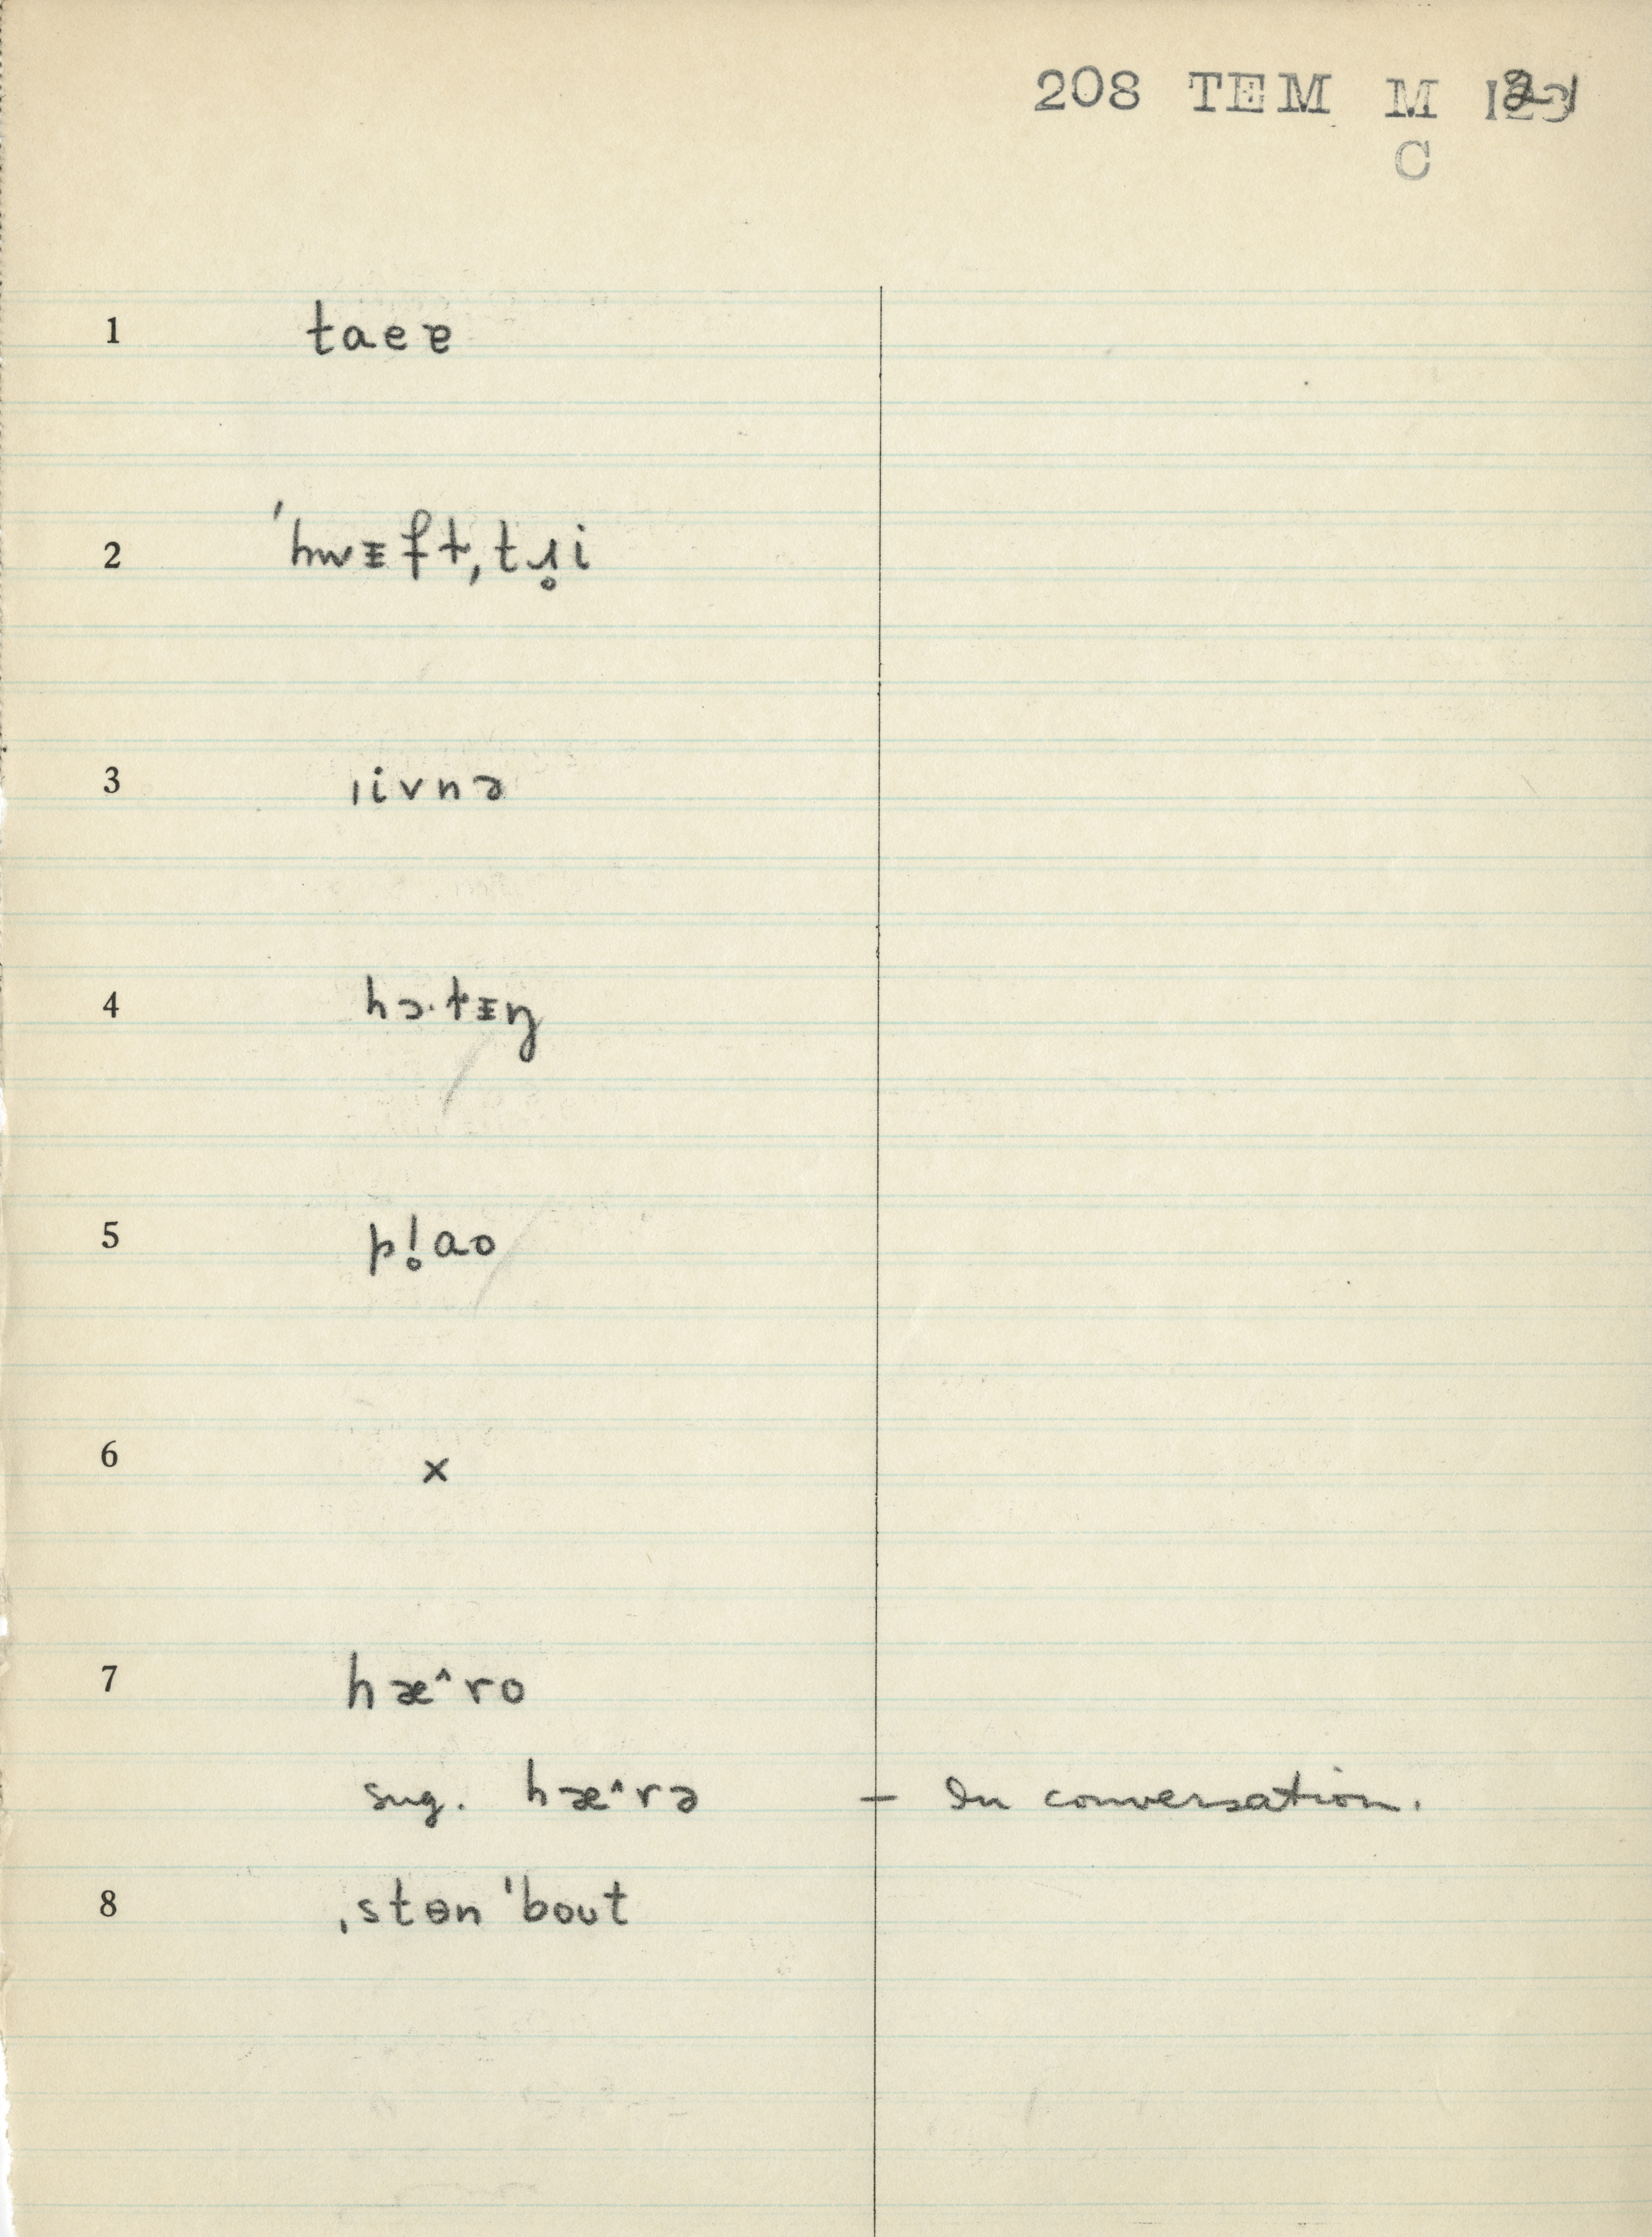 208 TEM M
C
1 taeɐ
2 ˈhwᵻft,tɹ̥i
3 ˌivnə
4 hɔ·tᵻŋ
5 pl̥ao
6 ×
7 hæ^ro
sug. hæ^rə – In conversation.
8 ˌstɵn ˈbout